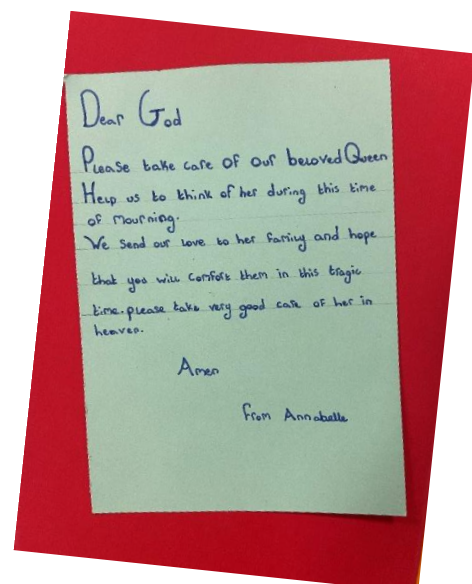 Dear God
Please take care of our beloved Queen
Help us to think of her during this time
of mourning.
We send our love to her family and hope
that you will comfort them in this tragic
time. please take very good care of her in
heaven.
Amen
from Annabelle